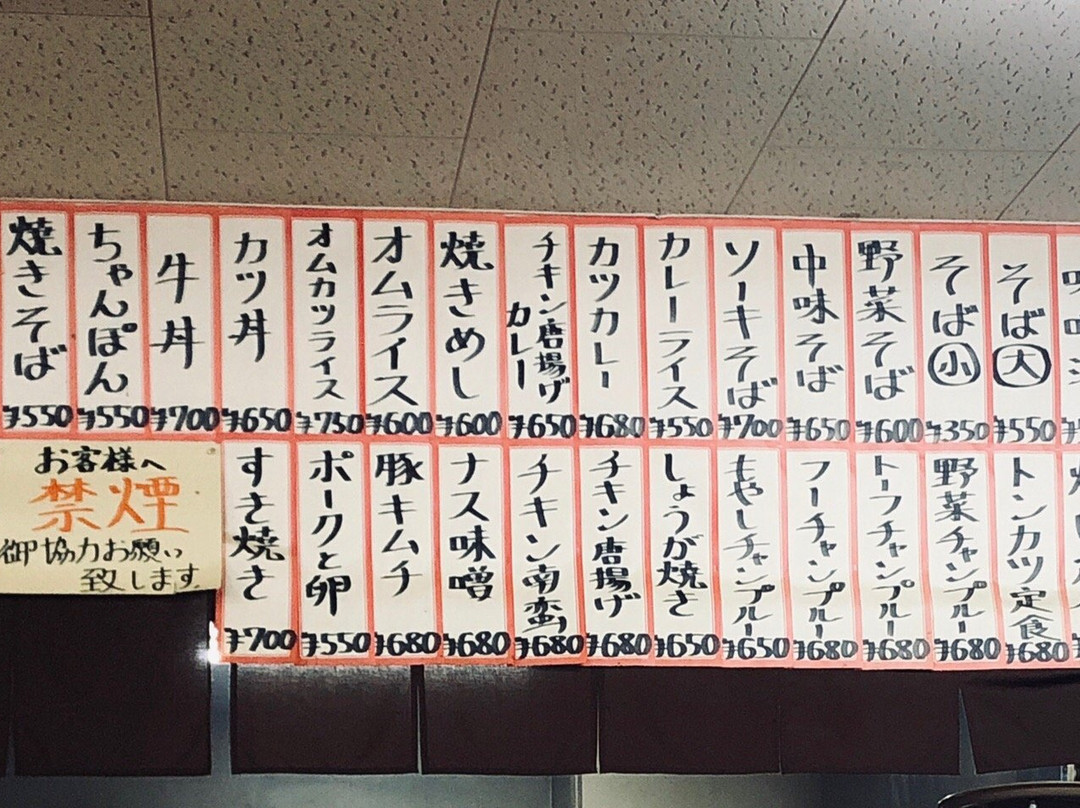 焼きそば
¥550
ちゃんぽん
¥550
牛丼
¥700
カツ丼
¥650
オムカツライス
¥750
オムライス
¥600
焼きめし
¥600
チキン唐揚げ
カレー
¥650
カツカレー
¥680
カレーライス
¥550
ソーキそば
¥700
中味そば
¥650
野菜そば
¥600
そば小
¥350
そば大
¥550
お客様へ
禁煙
御協力お願い
致します
すき焼き
¥700
ポークと卵
¥550
豚キムチ
¥680
ナス味噌
¥680
チキン南蛮
¥680
チキン唐揚げ
¥680
しょうが焼き
¥650
もやしチャンプルー
¥650
フーチャンプルー
¥680
トーフチャンプルー
¥680
野菜チャンプルー
¥680
トンカツ定食
¥680